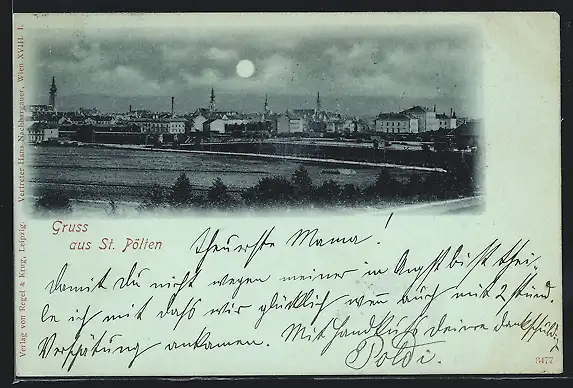 Gruss
aus St. Pölten
theuerste Mama!
damit du nicht wegen meiner in Angst bist thei-
le ich mit dass wir glücklich wen auch mit 2 stünd.
Verspätung ankamen. Mit Handkuss deine dankschuldige
Poldi.
Verlag von Regel & Krug, Leipzig. Vertreter Hans Nachbargauer, Wien XVIII. 1.
3477